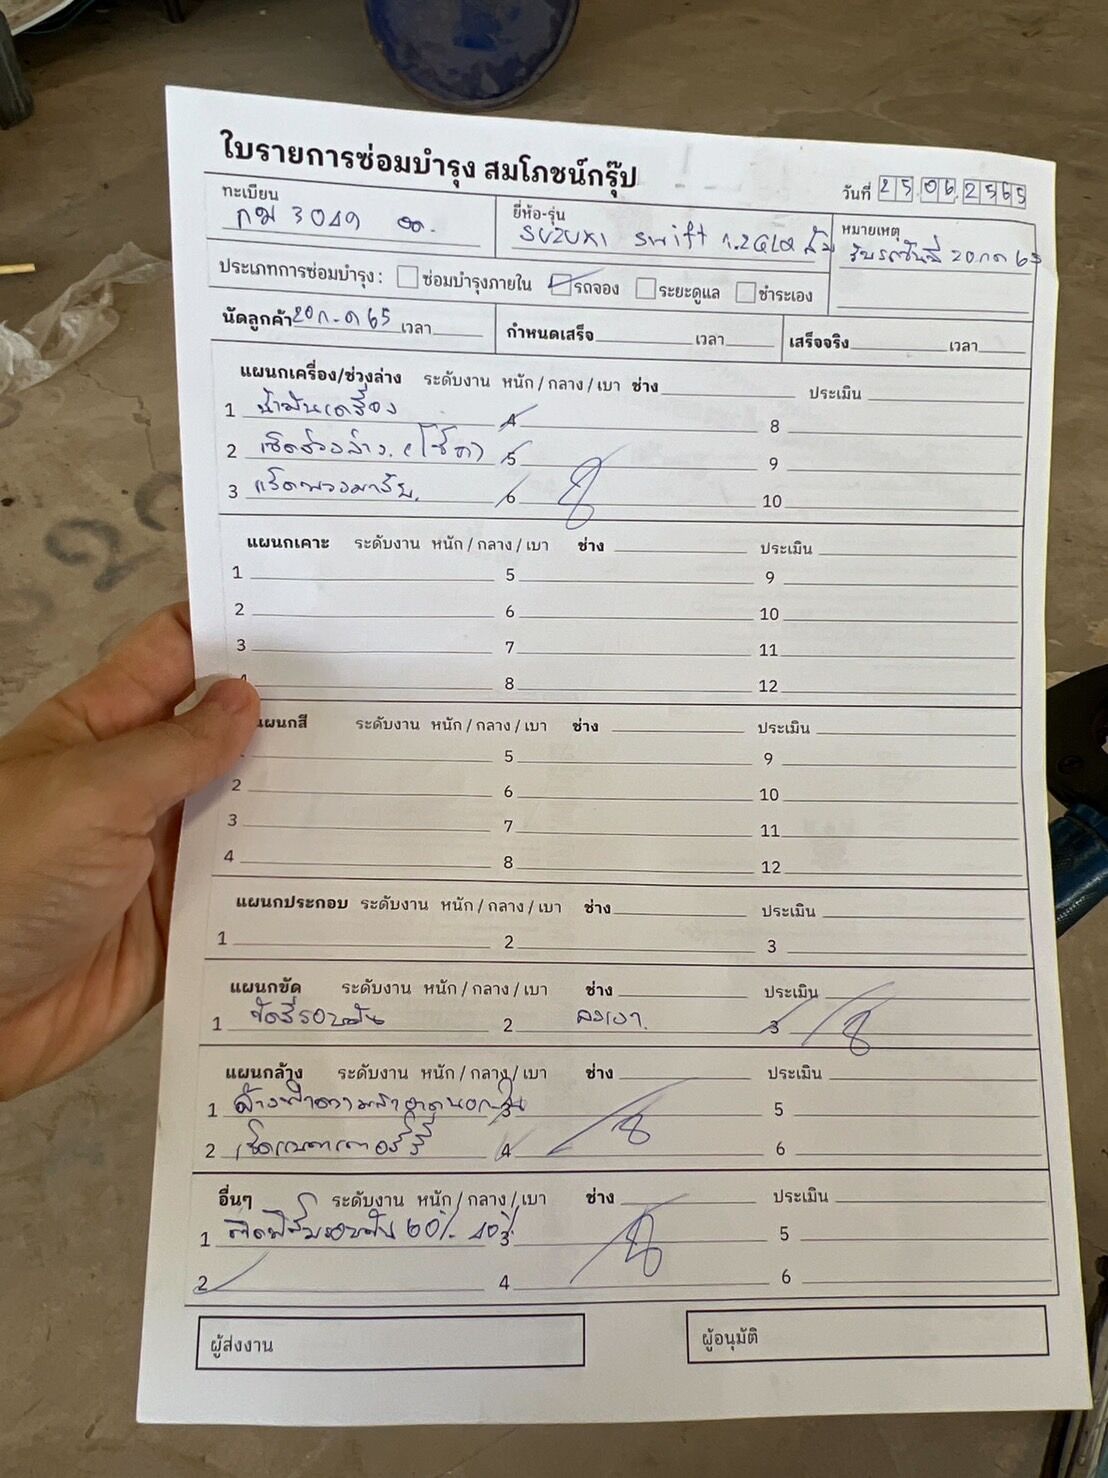 ใบรายการซ่อมบำรุง สมโภชน์กรุ๊ป
วันที่ 25 06 2565
ทะเบียน กม 3049
ยี่ห้อ-รุ่น SUZUKI Swift 1.2 GLX
หมายเหตุ รับรถวันที่ 20 กค 65
ประเภทการซ่อมบำรุง : ซ่อมบำรุงภายใน รถจอง ระยะดูแล ชำระเอง
นัดลูกค้า 20 ก.ค 65 เวลา
กำหนดเสร็จ เวลา
เสร็จจริง เวลา
แผนกเครื่อง/ช่วงล่าง ระดับงาน หนัก / กลาง / เบา ช่าง ประเมิน
1 น้ำมันเครื่อง 4 8
2 เช็คช่วงล่าง (โช๊ค) 5 9
3 เช็คพวงมาลัย 6 10
แผนกเคาะ ระดับงาน หนัก / กลาง / เบา ช่าง ประเมิน
1 5 9
2 6 10
3 7 11
4 8 12
แผนกสี ระดับงาน หนัก / กลาง / เบา ช่าง ประเมิน
5 9
2 6 10
3 7 11
4 8 12
แผนกประกอบ ระดับงาน หนัก / กลาง / เบา ช่าง ประเมิน
1 2 3
แผนกขัด ระดับงาน หนัก / กลาง / เบา ช่าง ประเมิน
1 ขัดสีรอบคัน 2 ลงเงา 3
แผนกล้าง ระดับงาน หนัก / กลาง / เบา ช่าง ประเมิน
1 ล้างทำความสะอาดนอกใน 3 5
2 เช็คแบตเตอร์รี่ 4 6
อื่นๆ ระดับงาน หนัก / กลาง / เบา ช่าง ประเมิน
1 ติดฟิล์มรอบคัน 60% 40% 3 5
2 4 6
ผู้ส่งงาน
ผู้อนุมัติ